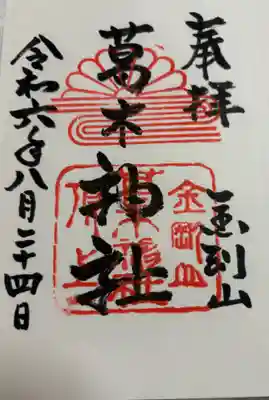 奉拝
金剛山
葛木神社
令和六年八月二十四日
金剛山